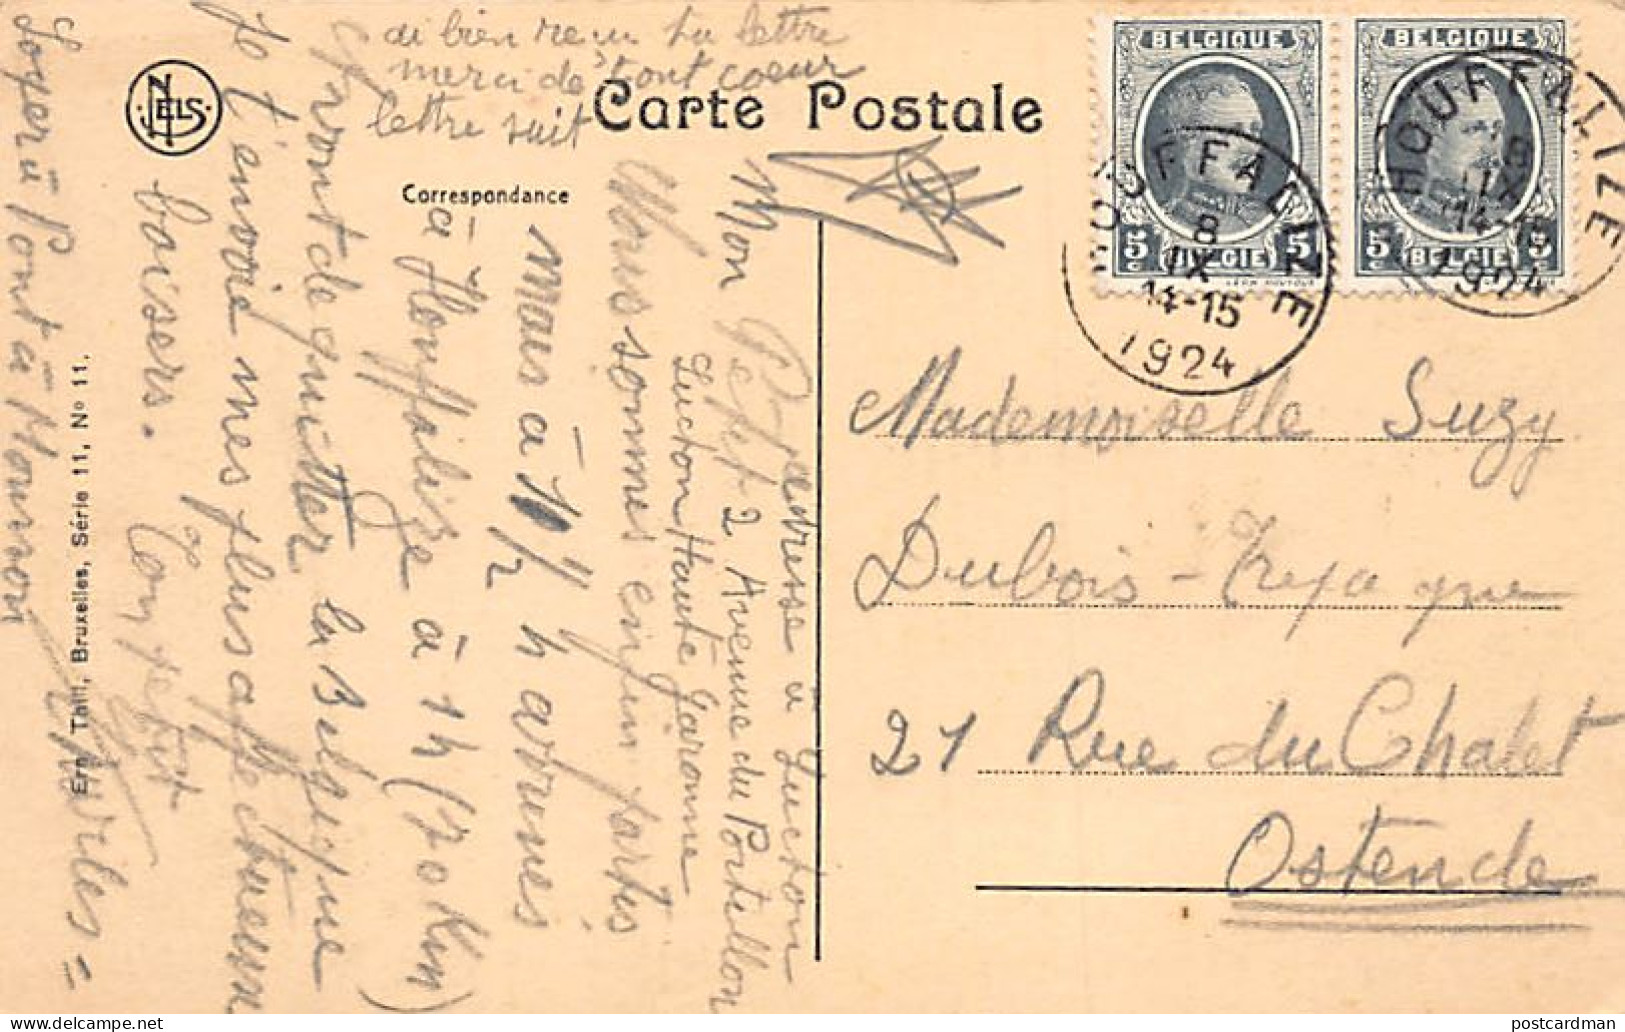 ai bien reçu ta lettre
merci de tout coeur
lettre suit
Carte Postale
NELS
Correspondance
BELGIQUE
5 c
BELGIE
5 c
BELGIQUE
5 c
BELGIE
5 c
HOUFFALIZE
8
IX
14-15
1924
HOUFFALIZE
8
IX
14-15
1924
Mon adresse à Luchon
2 Avenue du Portillon
Luchon Haute Garonne
Nous sommes enfin partis
mais à 11 1/2 h avonés
à Houffalize à 1 h (70 Km)
avant de quitter la Belgique
Je t'envoie mes plus affectueux
baisers. Ton petit
Charles =
Souper à Pont à Mousson
Mademoiselle Suzy
Dubois-
21 Rue du Chalet
Ostende
Ern. Thill, Bruxelles, Série 11, No 11.
postcardman